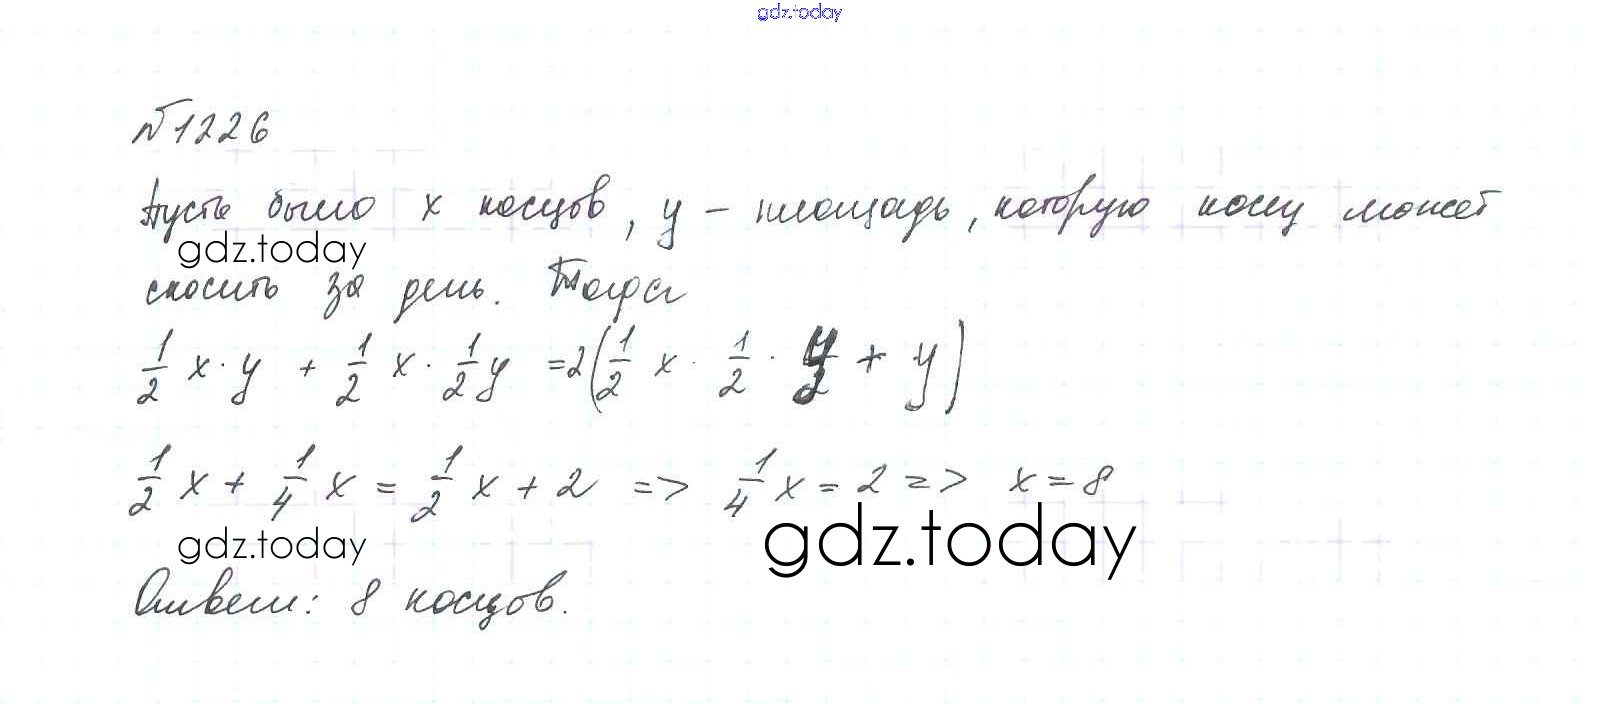 gdz.today
№1226
Пусть было x косцов, y – площадь, которую косец может
gdz.today
скосить за день. Тогда
1/2 x · y + 1/2 x · 1/2 y = 2(1/2 x · 1/2 · y/2 + y)
1/2 x + 1/4 x = 1/2 x + 2 => 1/4 x = 2 => x = 8
gdz.today
gdz.today
Ответ: 8 косцов.